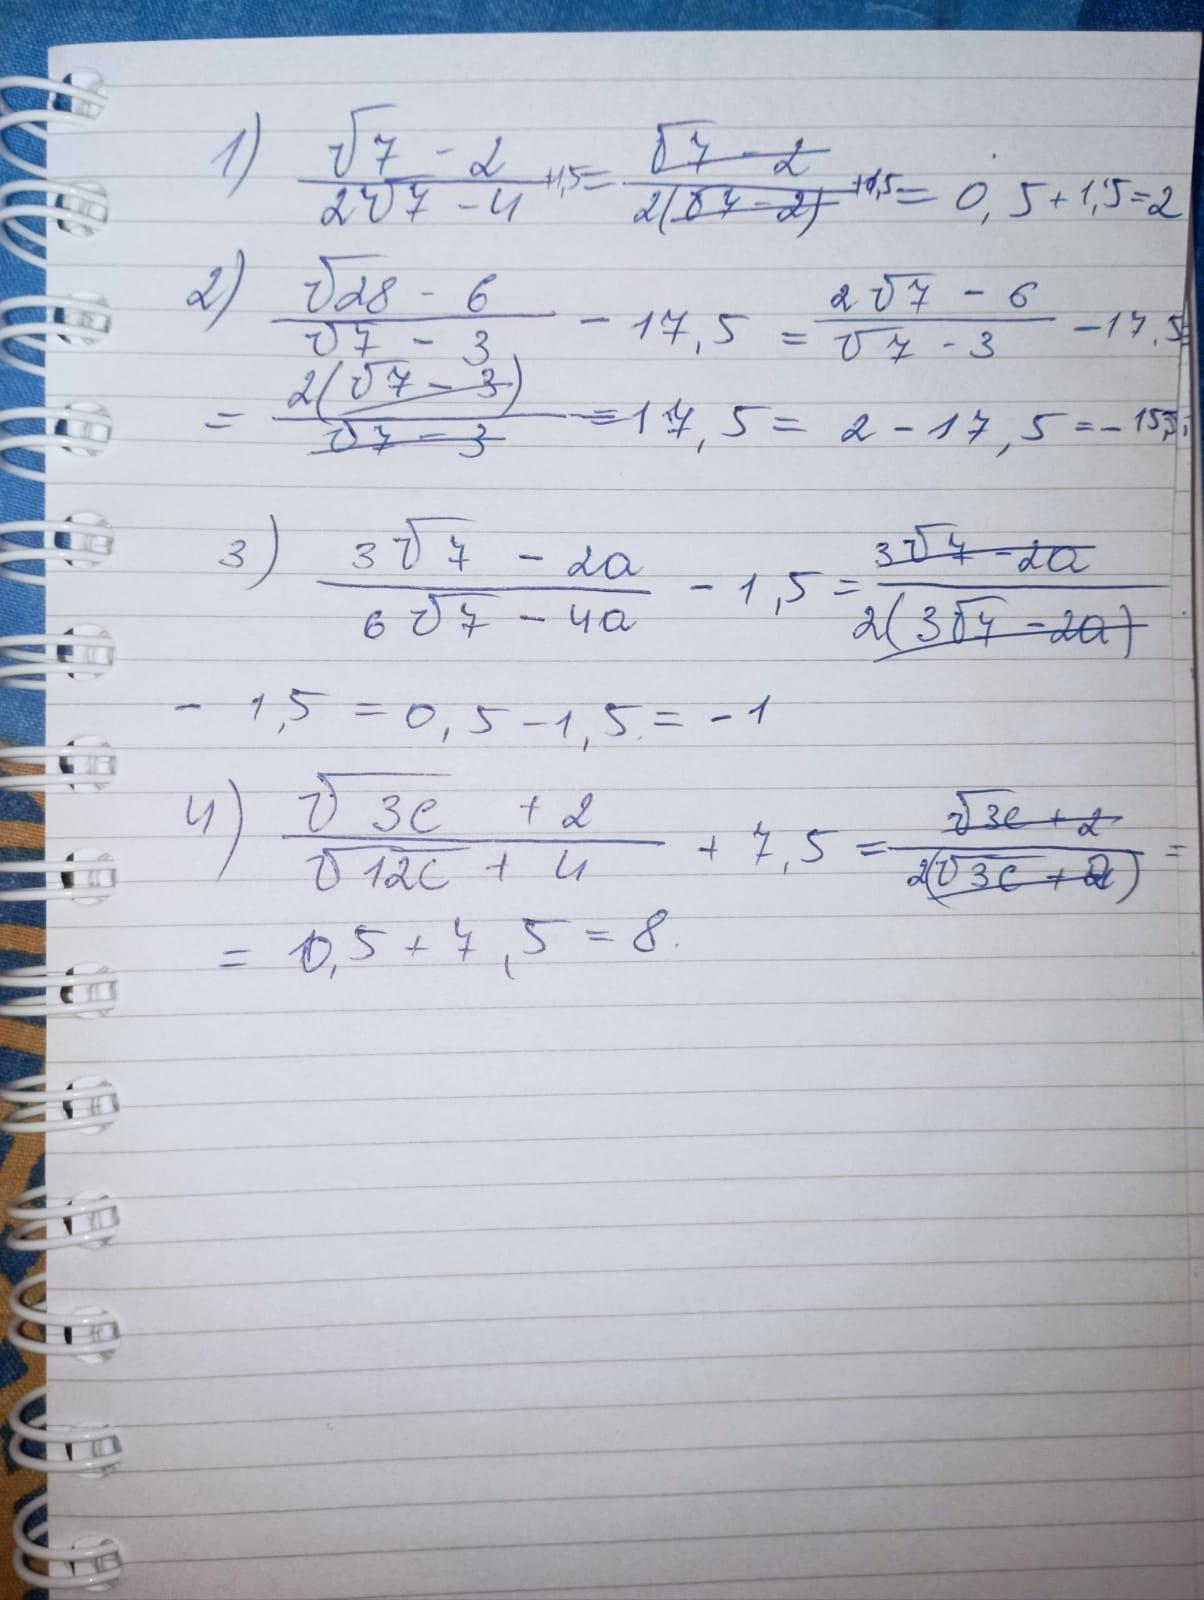 1) (√7 - 2)/(2√7 - 4) +1,5 = (√7 - 2)/(2(√7 - 2)) +1,5 = 0,5+1,5=2
2) (√28 - 6)/(√7 - 3) - 17,5 = (2√7 - 6)/(√7 - 3) - 17,5
= (2(√7 - 3))/(√7 - 3) - 17,5 = 2 - 17,5 = - 15,5
3) (3√7 - 2a)/(6√7 - 4a) - 1,5 = (3√7 - 2a)/(2(3√7 - 2a))
- 1,5 = 0,5 - 1,5 = -1
4) (√3c + 2)/(√12c + 4) + 7,5 = (√3c + 2)/(2(√3c + 2)) =
= 0,5 + 7,5 = 8.